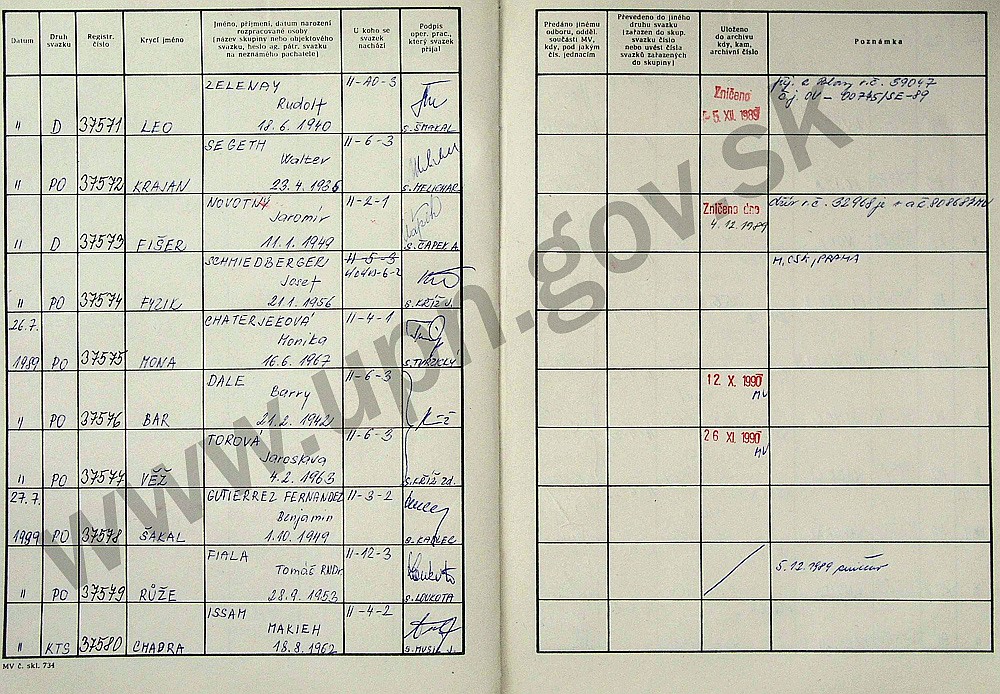 Datum
Druh
svazku
Registr.
číslo
Krycí jméno
Jméno, příjmení, datum narození
rozpracované osoby
(název skupiny nebo objektového
svazku, heslo ag. pátr. svazku
na neznámého pachatele)
U koho se
svazek
nachází
Podpis
oper. prac.,
který svazek
přijal
Předáno jinému
odboru, odděl.
součásti MV,
kdy, pod jakým
čís. jednacím
Převedeno do jiného
druhu svazku
(zařazen do skup.
svazku číslo
nebo uvést čísla
svazků zařazených
do skupiny)
Uloženo
do archivu
kdy, kam,
archivní číslo
Poznámka
ZELENAY II-AO-3
Rudolf
" D 37571 LEO 18.6.1940 S. ŠMAKAL
Zničeno
5. XII. 1989
č. 39047
čj. OV-00745/SE-89
SEGETH II-6-3
Walter
" PO 37572 KRAJAN 23.4.1936 S. MELICHAR
NOVOTNÝ II-2-1
Jaromír
" D 37573 FIŠER 11.1.1949 S. ČAPEK A.
Zničeno dne
4.12.1989
SCHMIEDBERGER II-5-3
Josef
" PO 37574 FYZIK 21.1.1956 S. KŘÍŽ J.
PRAHA
26.7. CHATERJEEOVÁ II-4-1
Monika
1989 PO 37575 MONA 16.6.1967
DALE II-6-3
Barry
" PO 37576 BAR 21.2.1942
12. X. 1990
MV
TOROVÁ II-6-3
Jaroslava
" PO 37577 VĚŽ 4.2.1963 S. KŘÍŽ ZD.
26 XI. 1990
MV
27.7. GUTIERREZ FERNANDEZ II-3-2
Benjamin
1989 PO 37578 ŠAKAL 1.10.1949 S. KADLEC
FIALA II-12-3
Tomáš RNDr.
" PO 37579 RŮŽE 28.9.1953 S. LOUKOTA
5.12.1989
ISSAM II-4-2
MAKIEH
" KTS 37580 CHADRA 18.8.1962 S. MUSIL J.
MV č. skl. 734
www.upn.gov.sk